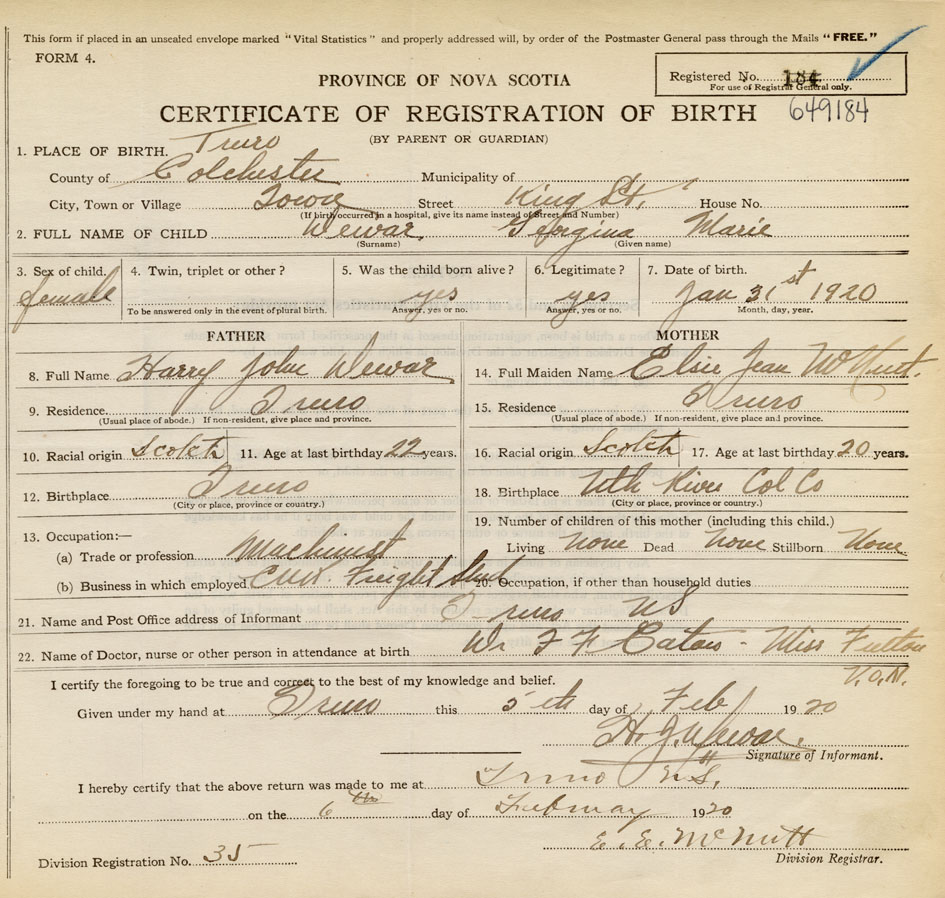 This form if placed in an unsealed envelope marked "Vital Statistics" and properly addressed will, by order of the Postmaster General pass through the Mails "FREE."
FORM 4.
PROVINCE OF NOVA SCOTIA
Registered No. 184
For use of Registrar General only.
649184
CERTIFICATE OF REGISTRATION OF BIRTH
(BY PARENT OR GUARDIAN)
1. PLACE OF BIRTH. Truro
County of Colchester Municipality of
City, Town or Village Town Street King St. House No.
(If birth occurred in a hospital, give its name instead of Street and Number)
2. FULL NAME OF CHILD Dewar, Georgina Marie
(Surname) (Given name)
3. Sex of child. 4. Twin, triplet or other? 5. Was the child born alive? 6. Legitimate? 7. Date of birth.
female yes yes Jan 31st 1920
To be answered only in the event of plural birth. Answer, yes or no. Answer, yes or no. Month, day, year.
FATHER MOTHER
8. Full Name Harry John Dewar 14. Full Maiden Name Elsie Jean McNutt.
9. Residence. Truro 15. Residence Truro
(Usual place of abode.) If non-resident, give place and province. (Usual place of abode.) If non-resident, give place and province.
10. Racial origin Scotch 11. Age at last birthday 22 years. 16. Racial origin Scotch 17. Age at last birthday 20 years.
12. Birthplace Truro 18. Birthplace Nth River Col Co
(City or place, province or country.) (City or place, province or country.)
19. Number of children of this mother (including this child.)
13. Occupation:—
(a) Trade or profession Machinist Living none Dead none Stillborn none
(b) Business in which employed Freight 20. Occupation, if other than household duties
21. Name and Post Office address of Informant Truro NS
22. Name of Doctor, nurse or other person in attendance at birth Dr F F Eaton - Miss Fulton
V.O.N.
I certify the foregoing to be true and correct to the best of my knowledge and belief.
Given under my hand at Truro this 5th day of Feb 1920
H. J. Dewar.
Signature of Informant.
I hereby certify that the above return was made to me at Truro N.S.
on the 6th day of February 1920
E. E. McNutt
Division Registration No. 35 Division Registrar.